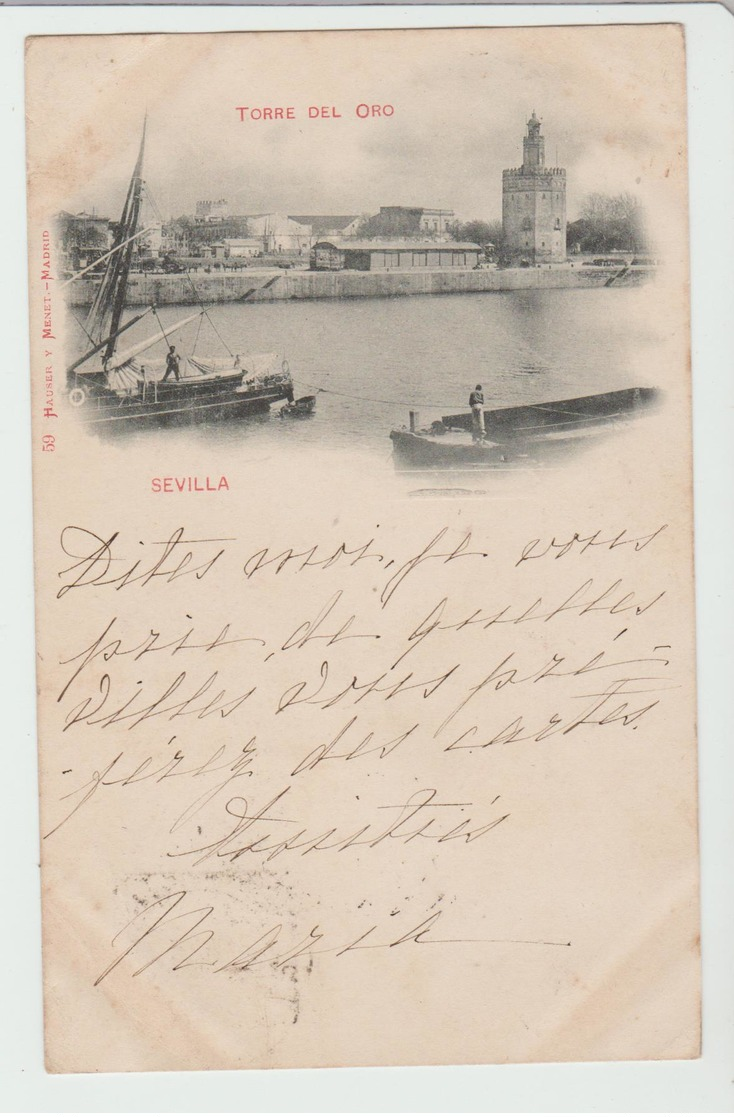 TORRE DEL ORO
59 HAUSER Y MENET.-MADRID
SEVILLA
Dites moi, je vous
prie, de quelles
villes vous pré-
-férez des cartes.
Maria